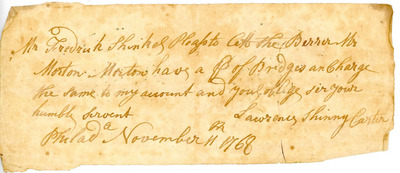 Mr Fredrick Shinkel Pleas to Lett the Berrer Mr
Morton Morton have a pr of Bridges an Charge
the same to my account and you oblige sir your
humble Servent Lawrence Shinny Carter
Philada November 11th 1768